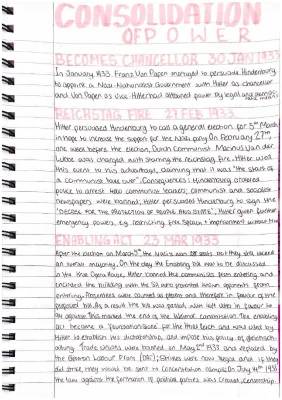 CONSOLIDATION
OF POWER
BECOMES CHANCELLOR 30 JAN 1933
In January 1933, Franz Von Papen managed to persuade Hindenburg
to appoint a Nazi-Nationalist Government with Hitler as chancellor
and Von Papen as vice. Hitler had attained power by legal and
REICHSTAG FIRE 27 FEB 1933
Hitler persuaded Hindenburg to call a general election for 5th March
in hope to increase the support for the Nazi party. On February 27th,
one week before the election, Dutch Communist Marinus Van der
Lubbe was charged with starting the reichstag fire. Hitler used
this event to his advantage, claiming that it was "the start of
a communist take over". Consequences: Hindenburg ordered
police to arrest communist leaders, communist and socialist
newspapers were banned, Hitler persuaded Hindenburg to sign the
"DECREE FOR THE PROTECTION OF PEOPLE AND STATE", Hitler given further
emergency powers, eg. restricting free speech + imprisonment without trial
ENABLING ACT 23 MAR 1933
After the election on March 5th, the Nazi's won 288 seats but they still needed
an overall majority. On the day the Enabling Bill was to be discussed
in the Kroll Opera House, Hitler banned the communists from entering and
encircled the building with the SS who prevented known opponents from
entering. Absentees were counted as present and therefore in favour of the
proposed bill. As a result the bill was passed, with votes in favour to
94 against. This marked the end of the Weimar constitution. The enabling
act became a 'foundation stone' for the third reich and was used by
Hitler to establish his dictatorship, and impose his policy of gleichsch-
altung. Trade Unions were banned on May 2nd 1933 and replaced by
the German Labour Front (DAF); Strikes were now illegal and if they
did strike, they would be sent to Concentration camps. On July 14th 1933
the law against the formation of political parties was